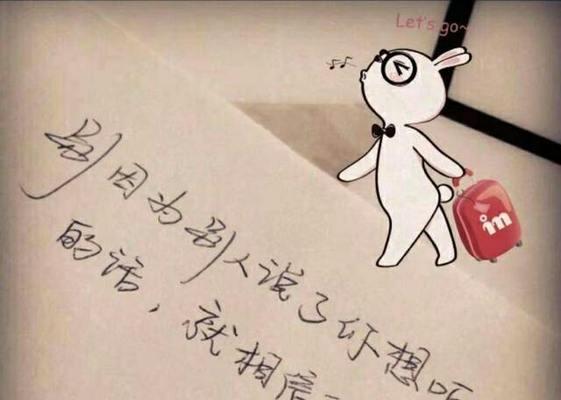 Let's go~
im
别因为别人说了你想听
的话，就相信